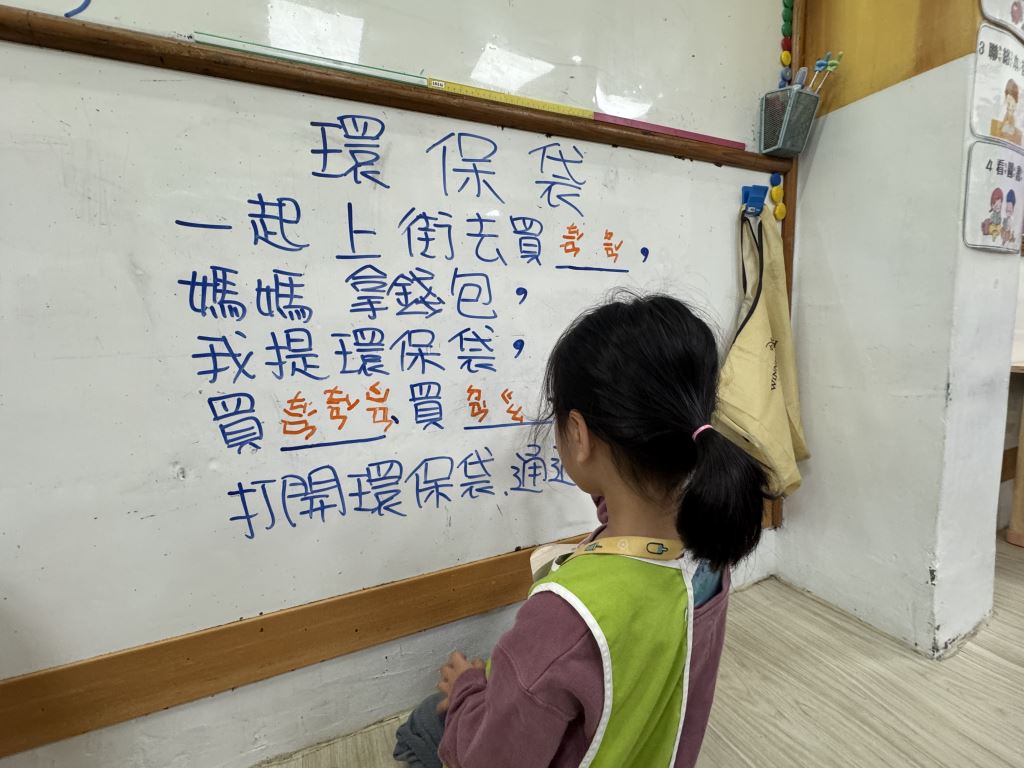 環保袋
一起上街去買____，
媽媽拿錢包，
我提環保袋，
買____、買____
打開環保袋、通通
3 聯絡本
4 看圖書